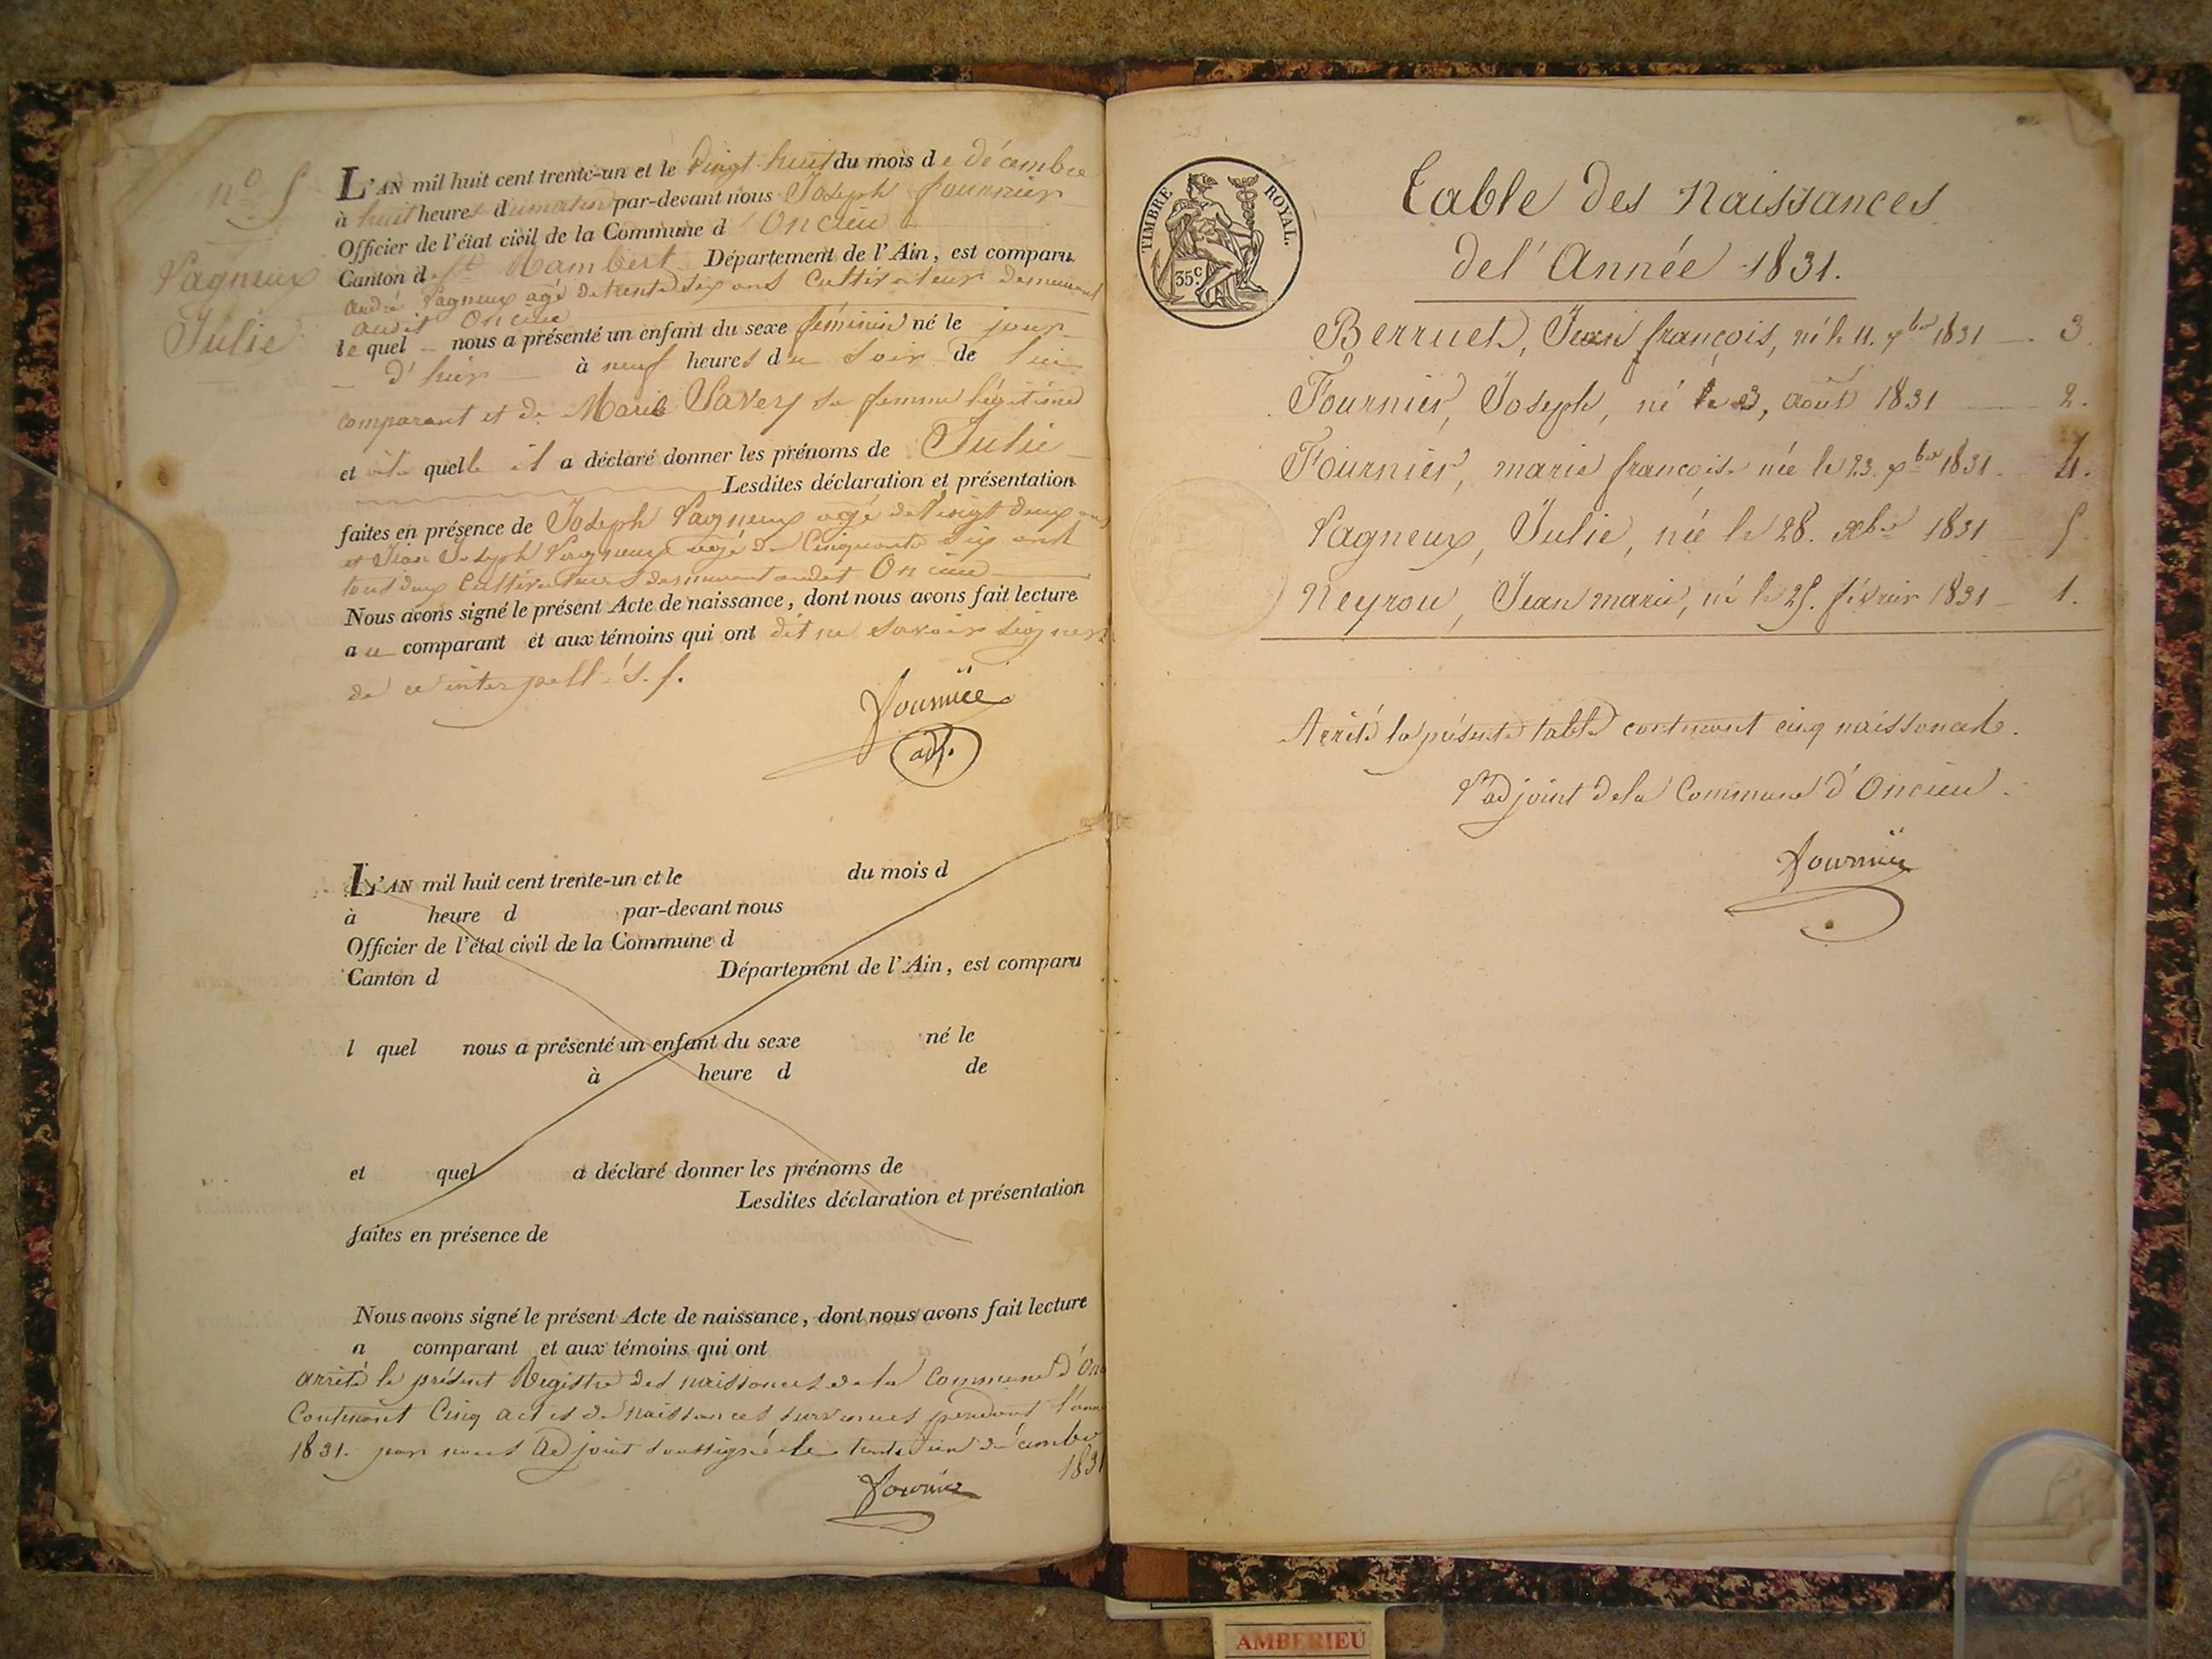 n° 5
Pagneux
Julie
L'AN mil huit cent trente-un et le vingt huit du mois de décembre
à huit heures du matin par-devant nous Joseph fournier
Officier de l'état civil de la Commune d'Oncieu
Canton de St Rambert Département de l'Ain, est comparu
andré Pagneux agé de trente six ans Cultivateur demeurant
audit Oncieu
le quel nous a présenté un enfant du sexe féminin né le jour
d'hier à neuf heures du soir de lui
comparant et de Marie Savey sa femme légitime
et à la quelle il a déclaré donner les prénoms de Julie
Lesdites déclaration et présentation
faites en présence de Joseph Pagneux agé de vingt deux ans
et Jean Joseph Pagneux agé de Cinquante six ans
tous deux Cultivateurs demeurant audit Oncieu
Nous avons signé le présent Acte de naissance, dont nous avons fait lecture
au comparant et aux témoins qui ont dit ne savoir signer
de ce interpellés.
Fournier
adj.
L'AN mil huit cent trente-un et le du mois d
à heure d par-devant nous
Officier de l'état civil de la Commune d
Canton d Département de l'Ain, est comparu
l quel nous a présenté un enfant du sexe né le
à heure d de
et quel a déclaré donner les prénoms de
Lesdites déclaration et présentation
faites en présence de
Nous avons signé le présent Acte de naissance, dont nous avons fait lecture
a comparant et aux témoins qui ont
arrêté le présent Registre des naissances de la Commune d'On
Contenant Cinq actes de naissances survenues pendant l'ann
1831. par nous Adjoint soussigné le trente un décembre
1831
Fournier
TIMBRE ROYAL.
35c.
Table des Naissances
de l'Année 1831.
Berruet, Jean françois, né le 11. 7bre 1831 3.
Fournier, Joseph, né le 3, août 1831 2.
Fournier, marie françoise née le 23. 7bre 1831. 4.
Pagneux, Julie, née le 28. Xbre 1831 5
Neyrou, Jean marie, né le 25. février 1831 1.
Arrêté la présente table contenant cinq naissances.
l'adjoint de la Commune d'Oncieu.
Fournier
AMBERIEU